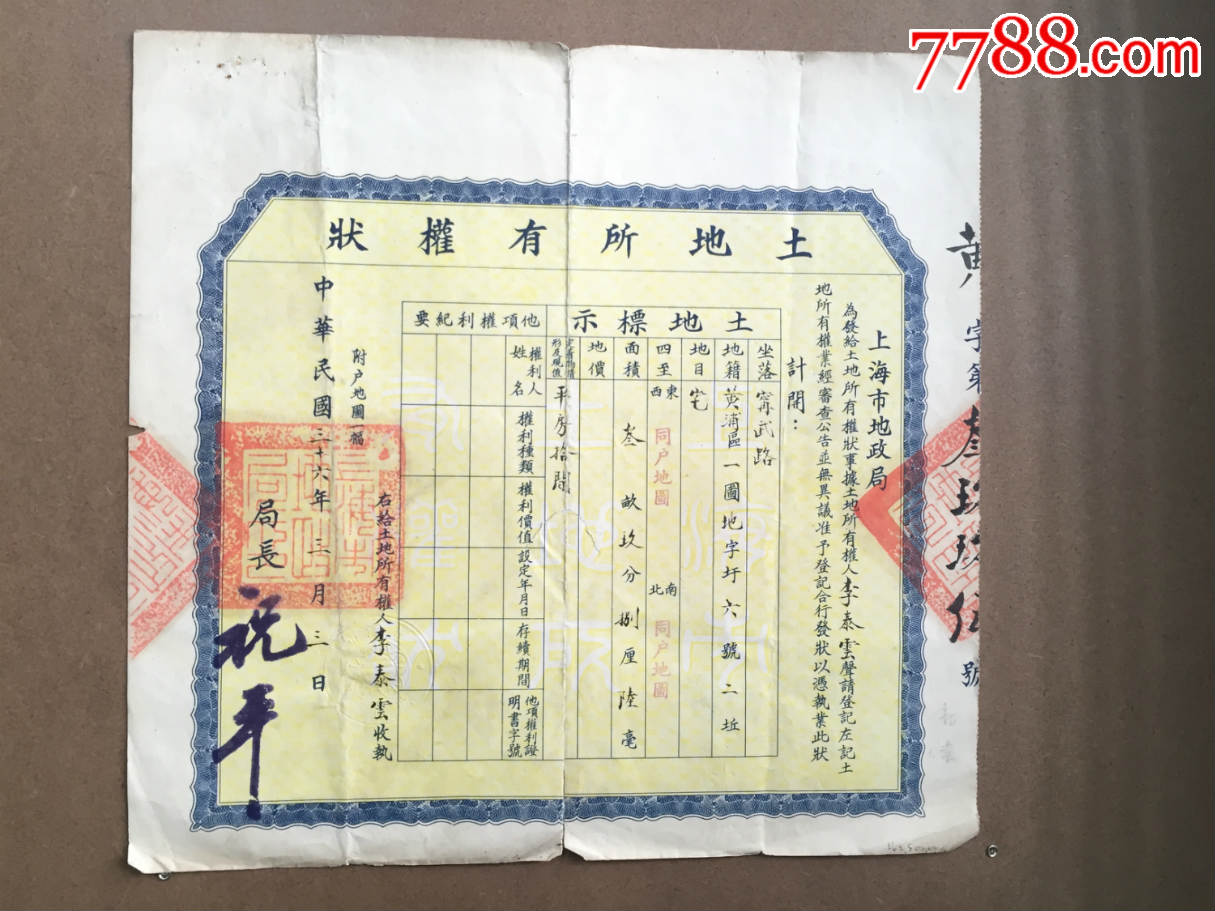 7788.com
土地所有權狀
黃字第叁玖玖伍號
上海市地政局
為發給土地所有權狀事據土地所有權人李泰雲聲請登記左記土
地所有權業經審查公告並無異議准予登記合行發狀以憑執業此狀
計開：
土地標示
坐落 甯武路
地籍 黃浦區一圖地字圩六號二坵
地目 宅
四至 東 同户地圖 南 同户地圖
西 北
面積 叁畝玖分捌厘陸毫
地價
定着物情形及現值 平房拾間
他項權利紀要
權利人姓名
權利種類
權利價值
設定年月日
存續期間
他項權利證明書字號
右給土地所有權人李泰雲收執
附户地圖一幅
中華民國三十六年三月三日
局長 祝平